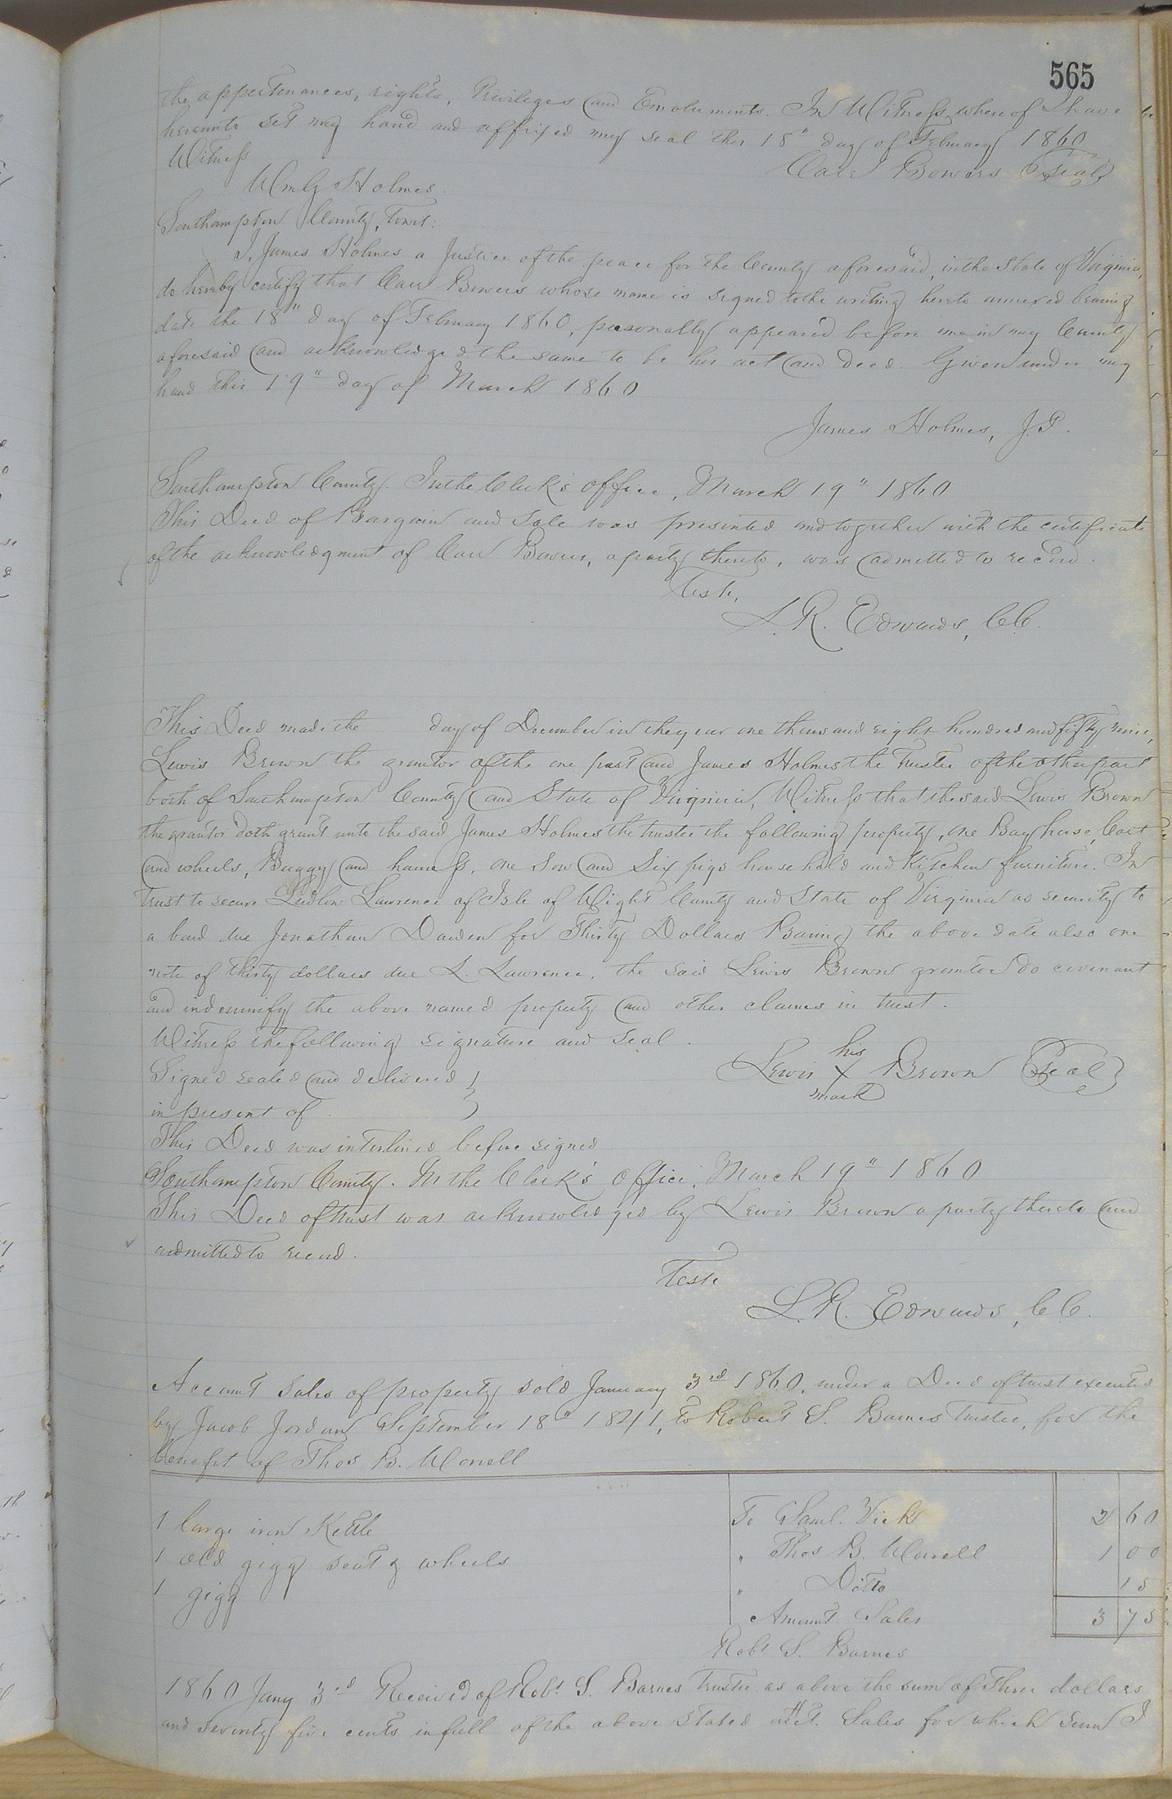 565
the appertenances, rights, Privileges and Emoluments. In Witness, where of I have
hereunto set my hand and affixed my seal this 18" day of February 1860
Witness Carr Bowers (Seal)
Holmes
Southampton County, Towit:
I, James Holmes a Justice of the peace for the County aforesaid, in the State of Virginia,
do hereby certify that Carr Bowers whose name is signed to the writing hereto annexed bearing
date the 18" day of February 1860, personally appeared before me in my County
aforesaid and acknowledged the same to be his act and deed. Given under my
hand this 19" day of March 1860
James Holmes, J.P.
Southampton County. In the Clerk's office, March 19" 1860
This Deed of Bargain and Sale was presented and together with the certificate
of the acknowledgment of Carr Bowers, a party thereto, was admitted to record.
Teste,
L. R. Edwards, C.C.
This Deed made the day of December in the year one thousand eight hundred and fifty nine,
Lewis Brown the grantor of the one part and James Holmes the Trustee of the other part
both of Southampton County and State of Virginia, Witness that the said Lewis Brown
the grantor doth grant unto the said James Holmes the trustee the following property, one Bay horse, Cart
and wheels, Buggy and harness, one Sow and Six pigs house hold and Kitchen furniture. In
Trust to secure Lawrence of Isle of Wight County and State of Virginia as security to
a bond due Jonathan Darden for Thirty Dollars Baring the above date also one
note of thirty dollars due L. Lawrence, the said Lewis Brown grantor do covenant
and indemnify the above named property and other claims in trust.
Witness the following signature and seal.
Signed sealed and delivered } Lewis his X mark Brown (Seal)
in present of }
This Deed was interlined before signed
Southampton County. In the Clerk's Office, March 19" 1860
This Deed of trust was acknowledged by Lewis Brown a party thereto and
admitted to record.
Teste
L. R. Edwards, C.C.
Account Sales of property sold January 3rd 1860, under a Deed of trust executed
by Jacob Jordan September 18" 1841, to Robert S. Barnes Trustee, for the
benefit of Thos B. Worrell
1 large iron Kettle To Saml. Vick 2 60
1 old gigg seat & wheels " Thos B. Worrell 1 00
1 gigg " Ditto 15
Amount Sales 3 75
Robt S. Barnes
1860 Jany 3rd Received of Robt S. Barnes Trustee as above the sum of Three dollars
and seventy five cents in full of the above stated acct. Sales for which sum I